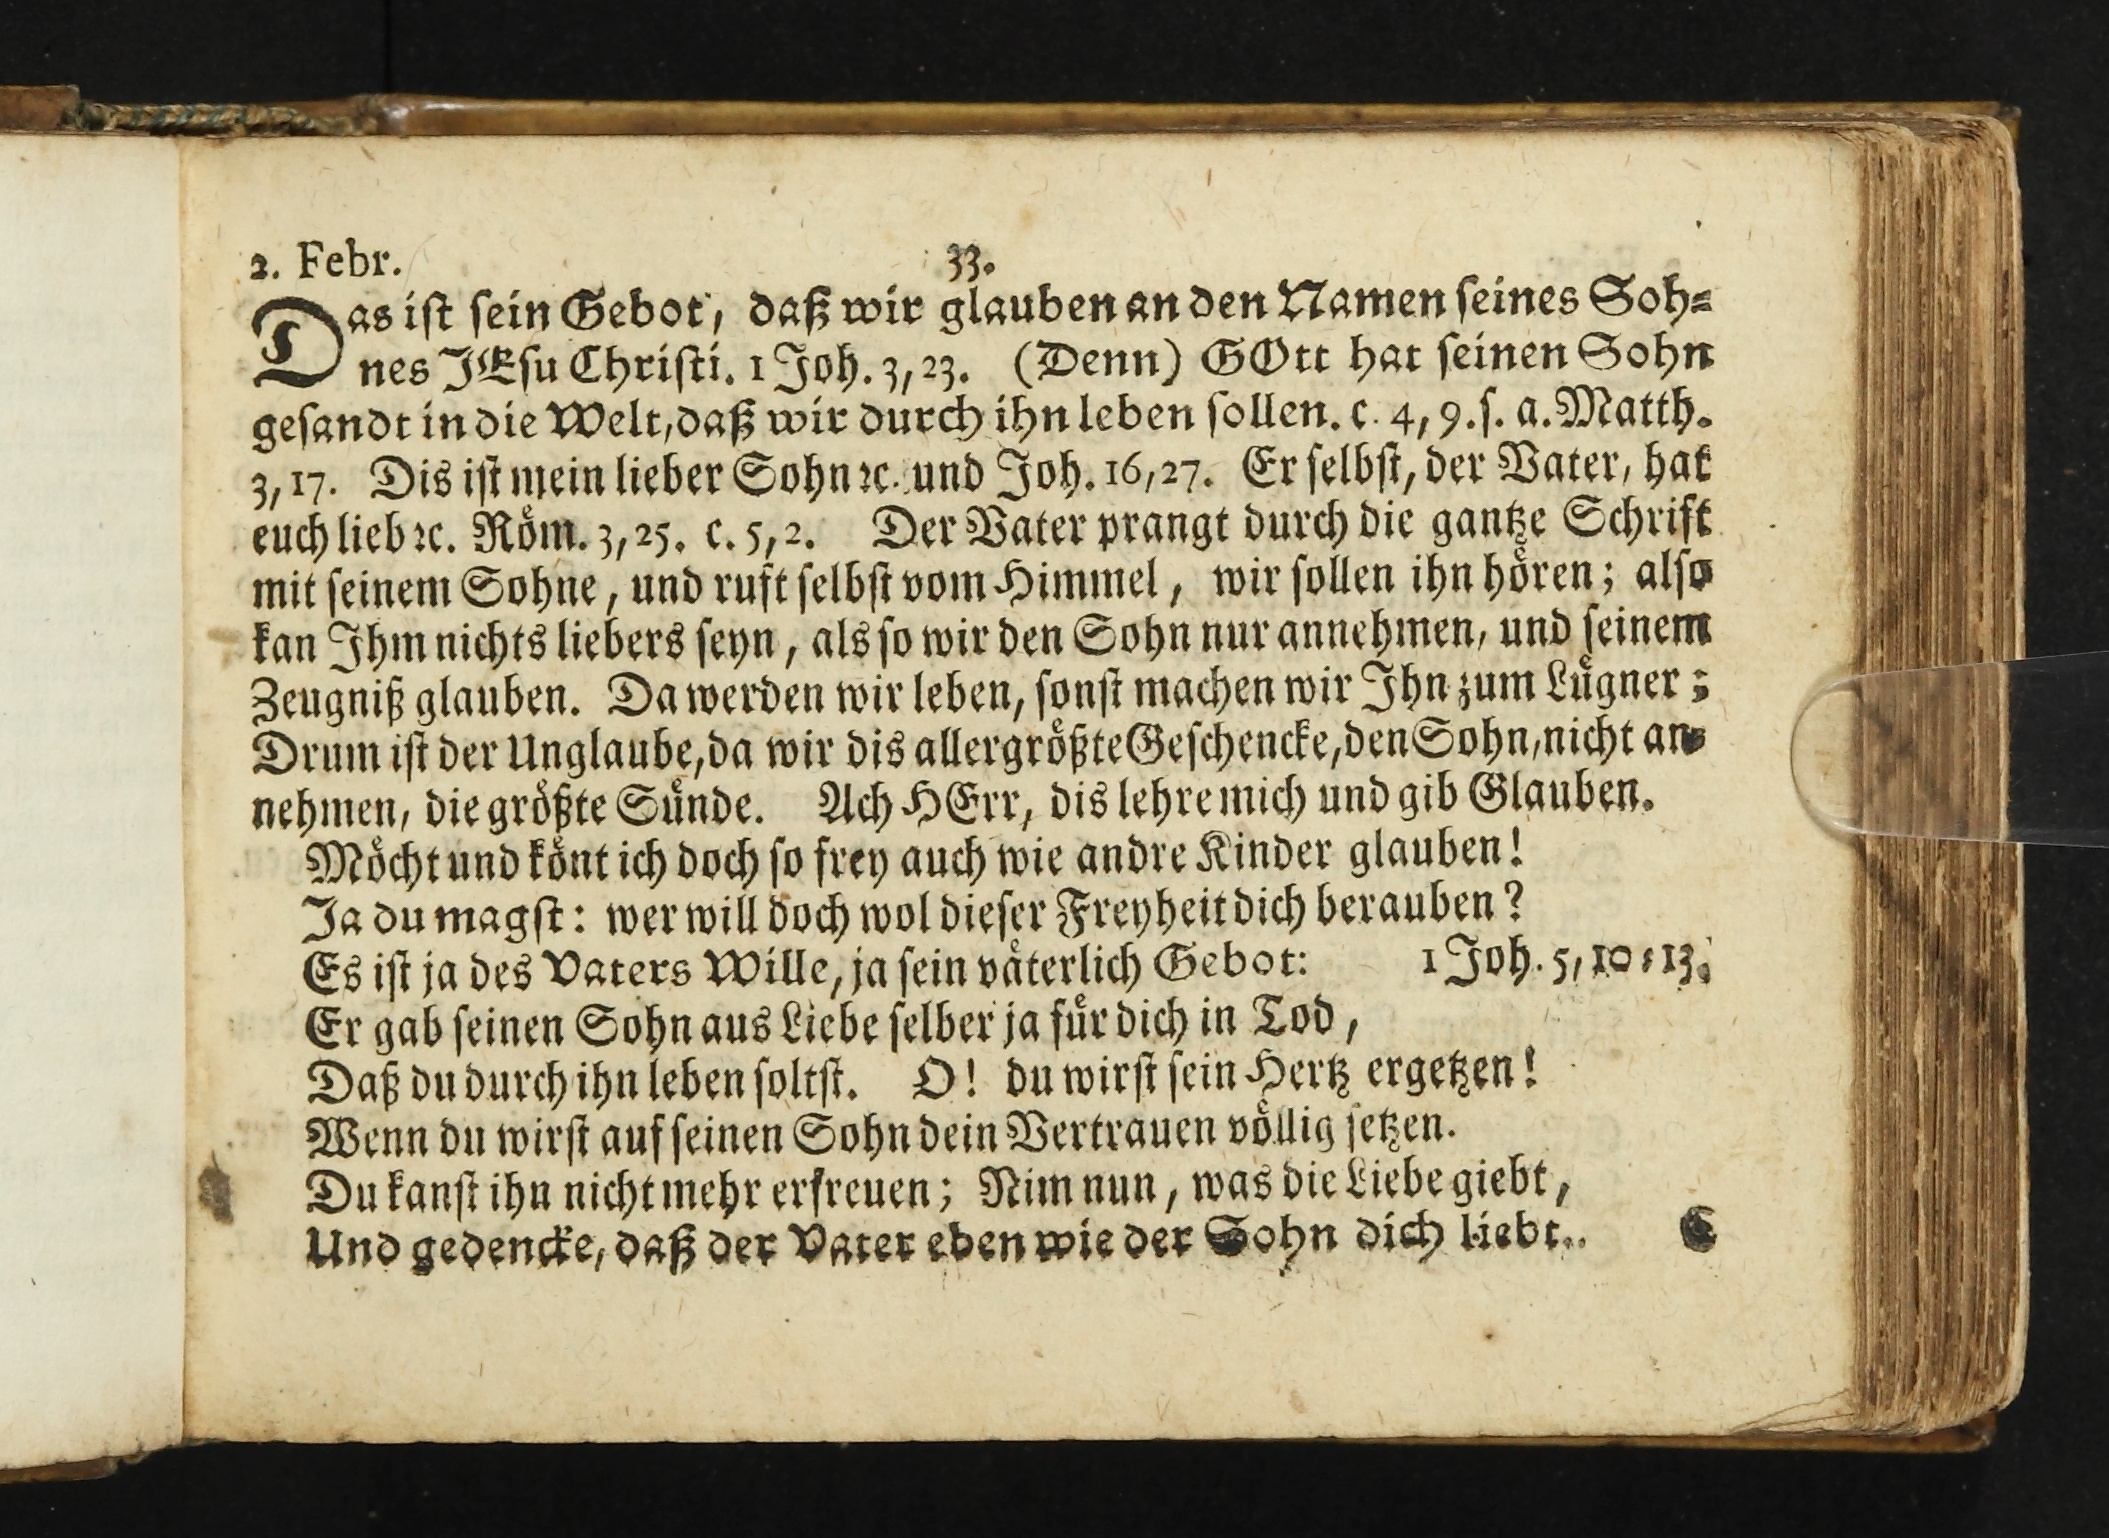 2. Febr. 33.
Das ist sein Gebot, daß wir glauben an den Namen seines Soh⸗
nes JEsu Christi. 1 Joh. 3, 23. (Denn) GOtt hat seinen Sohn
gesandt in die Welt, daß wir durch ihn leben sollen. c. 4, 9. s. a. Matth.
3, 17. Dis ist mein lieber Sohn ꝛc. und Joh. 16, 27. Er selbst, der Vater, hat
euch lieb ꝛc. Röm. 3, 25. c. 5, 2. Der Vater prangt durch die gantze Schrift
mit seinem Sohne, und ruft selbst vom Himmel, wir sollen ihn hören; also
kan Ihm nichts liebers seyn, als so wir den Sohn nur annehmen, und seinem
Zeugniß glauben. Da werden wir leben, sonst machen wir Ihn zum Lügner;
Drum ist der Unglaube, da wir dis allergrößte Geschencke, den Sohn, nicht an⸗
nehmen, die größte Sünde. Ach HErr, dis lehre mich und gib Glauben.
Möcht und könt ich doch so frey auch wie andre Kinder glauben!
Ja du magst: wer will doch wol dieser Freyheit dich berauben?
Es ist ja des Vaters Wille, ja sein väterlich Gebot: 1 Joh. 5, 10⸗13.
Er gab seinen Sohn aus Liebe selber ja für dich in Tod,
Daß du durch ihn leben soltst. O! du wirst sein Hertz ergetzen!
Wenn du wirst auf seinen Sohn dein Vertrauen völlig setzen.
Du kanst ihn nicht mehr erfreuen; Nim nun, was die Liebe giebt,
Und gedencke, daß der Vater eben wie der Sohn dich liebt.